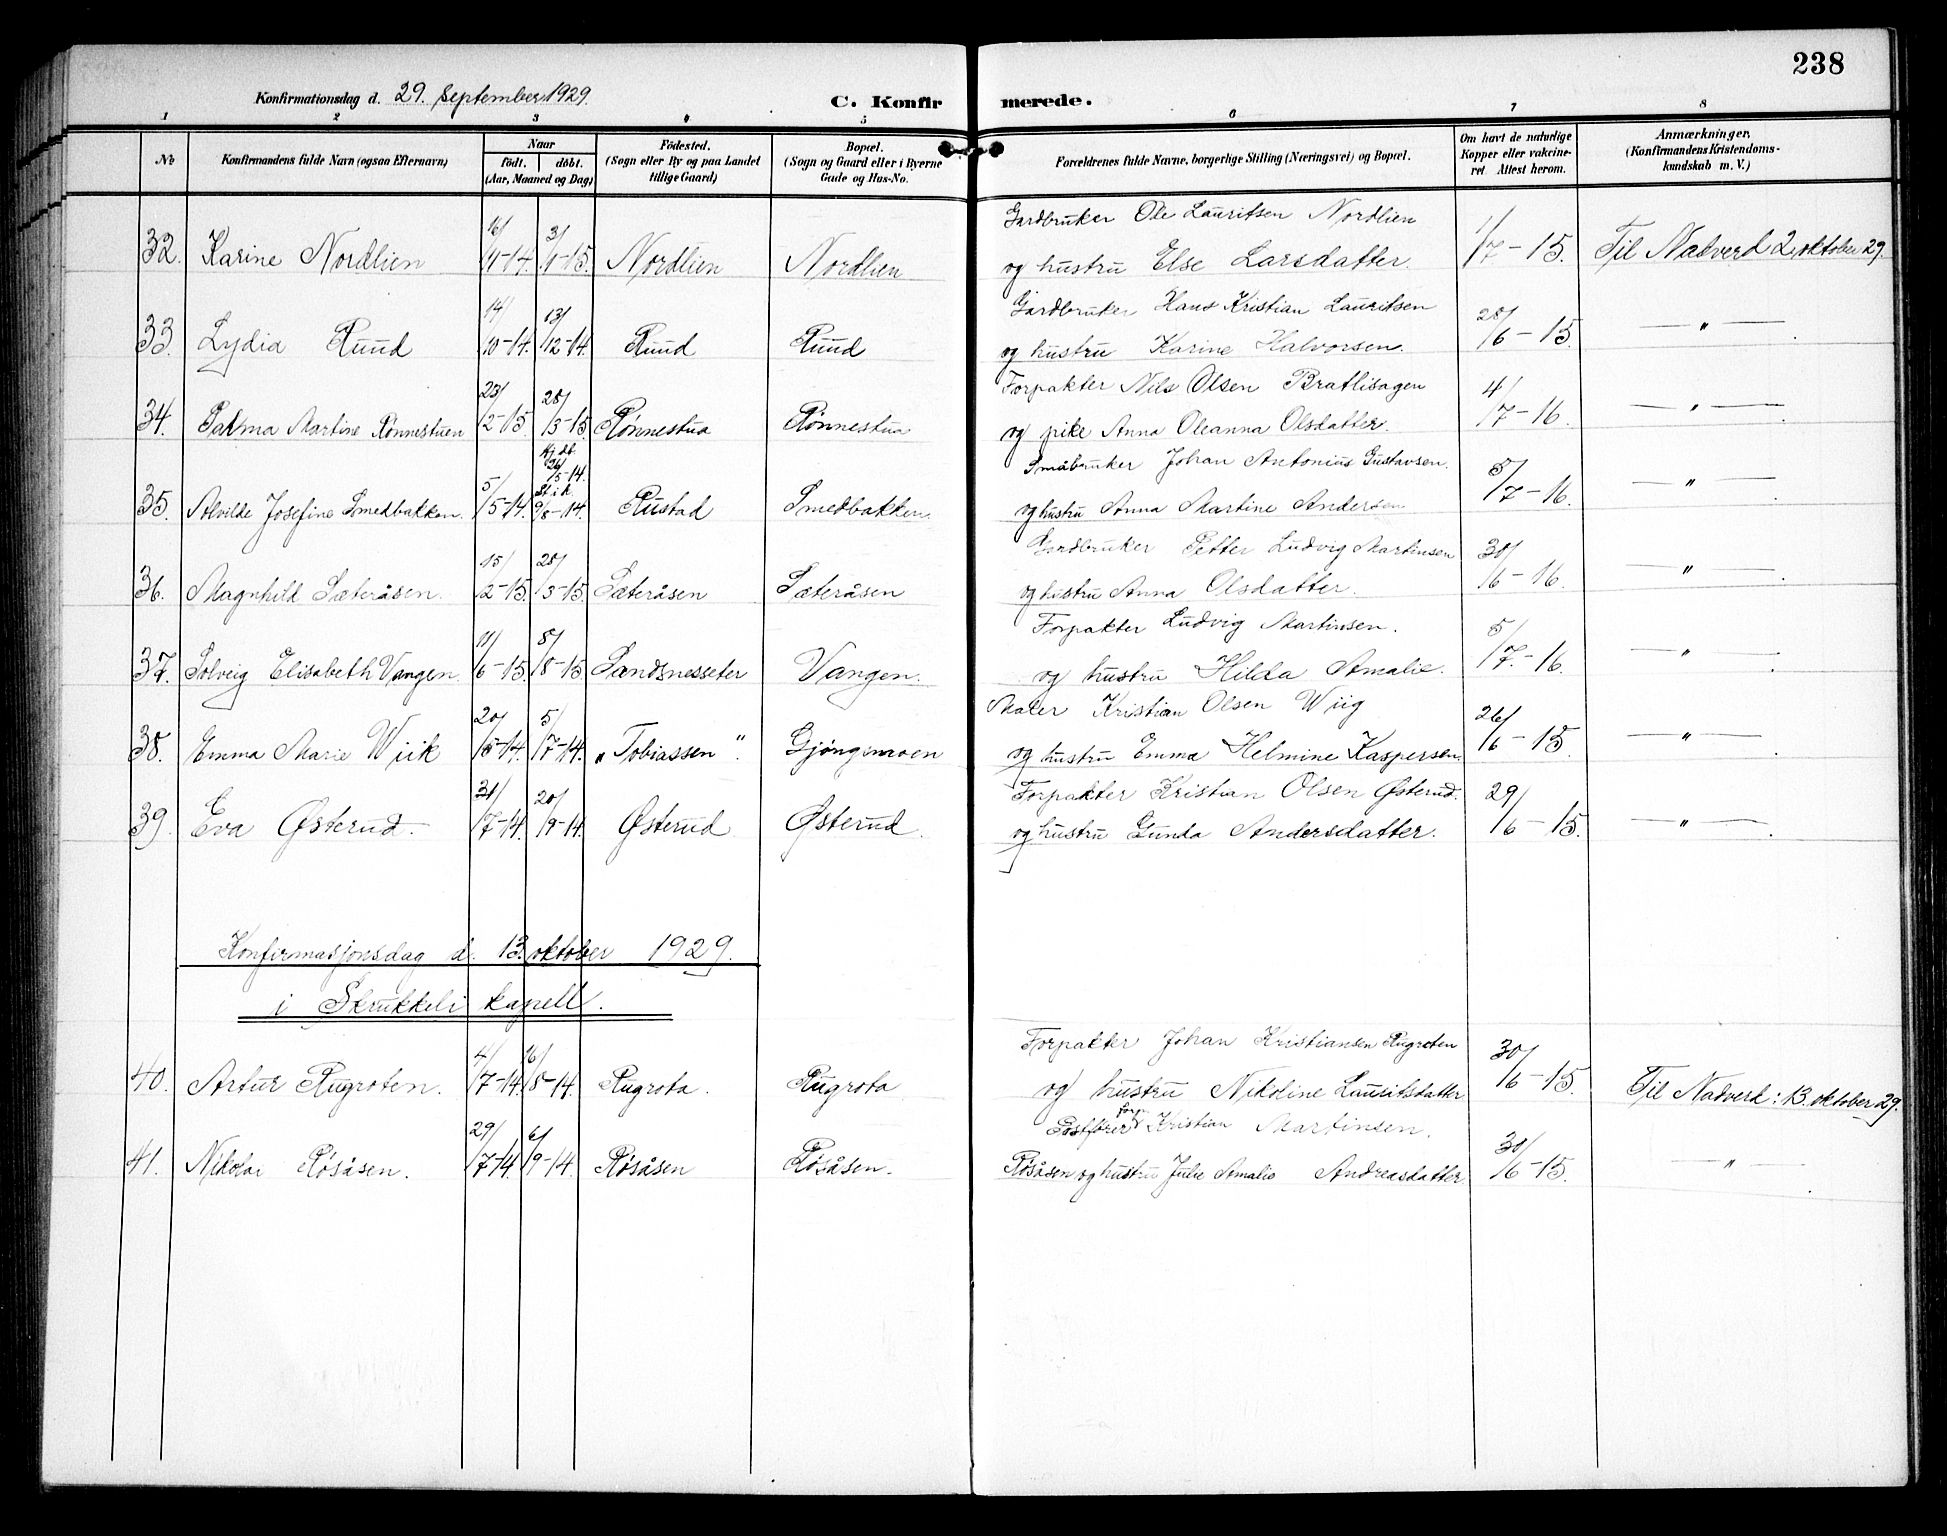 238
Konfirmationsdag d. 29. September 1929. C. Konfirmerede.
1 2 3 4 5 6 7 8
No Konfirmandens fulde Navn (ogsaa Efternavn) Naar födt. döbt. (Aar, Maaned og Dag) Födested. (Sogn eller By og paa Landet tillige Gaard) Bopæl. (Sogn og Gaard eller i Byerne Gade og Hus-No. Forældrenes fulde Navne, borgerlige Stilling (Næringsvei) og Bopæl. Om havt de naturlige Kopper eller vakcineret Attest herom. Anmærkninger. (Konfirmandens Kristendomskundskab m. V.)
Gardbruker Ole Lauritsen Nordlien
32. Karine Nordlien 16/11-14. 3/1-15. Nordlien Nordlien og hustru Else Larsdatter. 1/7-15. Til Nadverd 2 oktober 29.
Gårdbruker Hans Kristian Lauritsen
33. Lydia Ruud 14/10-14. 13/12-14. Ruud Ruud og hustru Karine Halvorsen. 28/6-15 — " —
Forpakter Nils Olsen Bratlisagen
34. Palma Martine Rønnestuen 23/2-15. 28/3-15. Rønnestua Rønnestua og pike Anna Oleanna Olsdatter. 4/7-16. — " —
Småbruker Johan Antonius Gustavsen.
35. Alvilde Josefine Smedbakken. 5/5-14. Hj. db. 26/5-14. St. i k. 9/8-14. Rustad Smedbakken. og hustru Anna Martine Andersen 5/7-16. — " —
Gardbruker Petter Ludvig Martinsen
36. Magnhild Sæteråsen. 15/2-15. 28/3-15. Sæteråsen Sæteråsen og hustru Anna Olsdatter. 30/6-16. — " —
Forpakter Ludvig Martinsen.
37. Solveig Elisabeth Vangen. 11/6-15. 8/8-15. Sandsnesseter Vangen. og hustru Hilda Amalie. 5/7-16. — " —
Maler Kristian Olsen Wiig
38. Emma Marie Wiik 20/5-14. 5/7-14. „Tobiassen". Gjøngsmoen og hustru Emma Helmine Kaspersen. 26/6-15 — " —
Forpakter Kristian Olsen Østerud.
39. Eva Østerud. 31/7-14. 20/9-14. Østerud Østerud. og hustru Gunda Andersdatter. 29/6-15. — " —
Konfirmasjonsdag d. 13. oktober 1929.
i Skrukkeli kapell.
Forpakter Johan Kristiansen Rugroten
40. Artur Rugroten. 4/7-14. 16/8-14. Rugrota. Rugrota og hustru Nikoline Lauritsdatter 30/6-15. Til Nadverd: 13 oktober 29.
Postfører forp. Kristian Martinsen.
41. Nikolai Røsåsen. 29/7-14. 6/9-14. Røsåsen Røsåsen. Røsåsen og hustru Julie Amalie Andreasdatter. 30/6-15. — " —